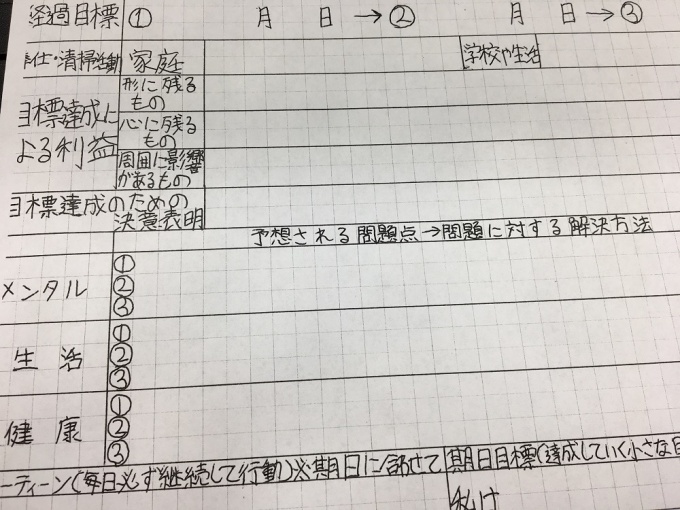 経過目標 ① 月 日 → ② 月 日 → ③
仕・清掃活動 家庭 学校や生活
目標達成に
よる利益
形に残る
もの
心に残る
もの
周囲に影響
があるもの
目標達成のための
決意表明
予想される問題点→問題に対する解決方法
メンタル
①
②
③
生活
①
②
③
健康
①
②
③
ーティーン(毎日必ず継続して行動)※期日に合わせて
期日目標(達成していく小さな目
私は